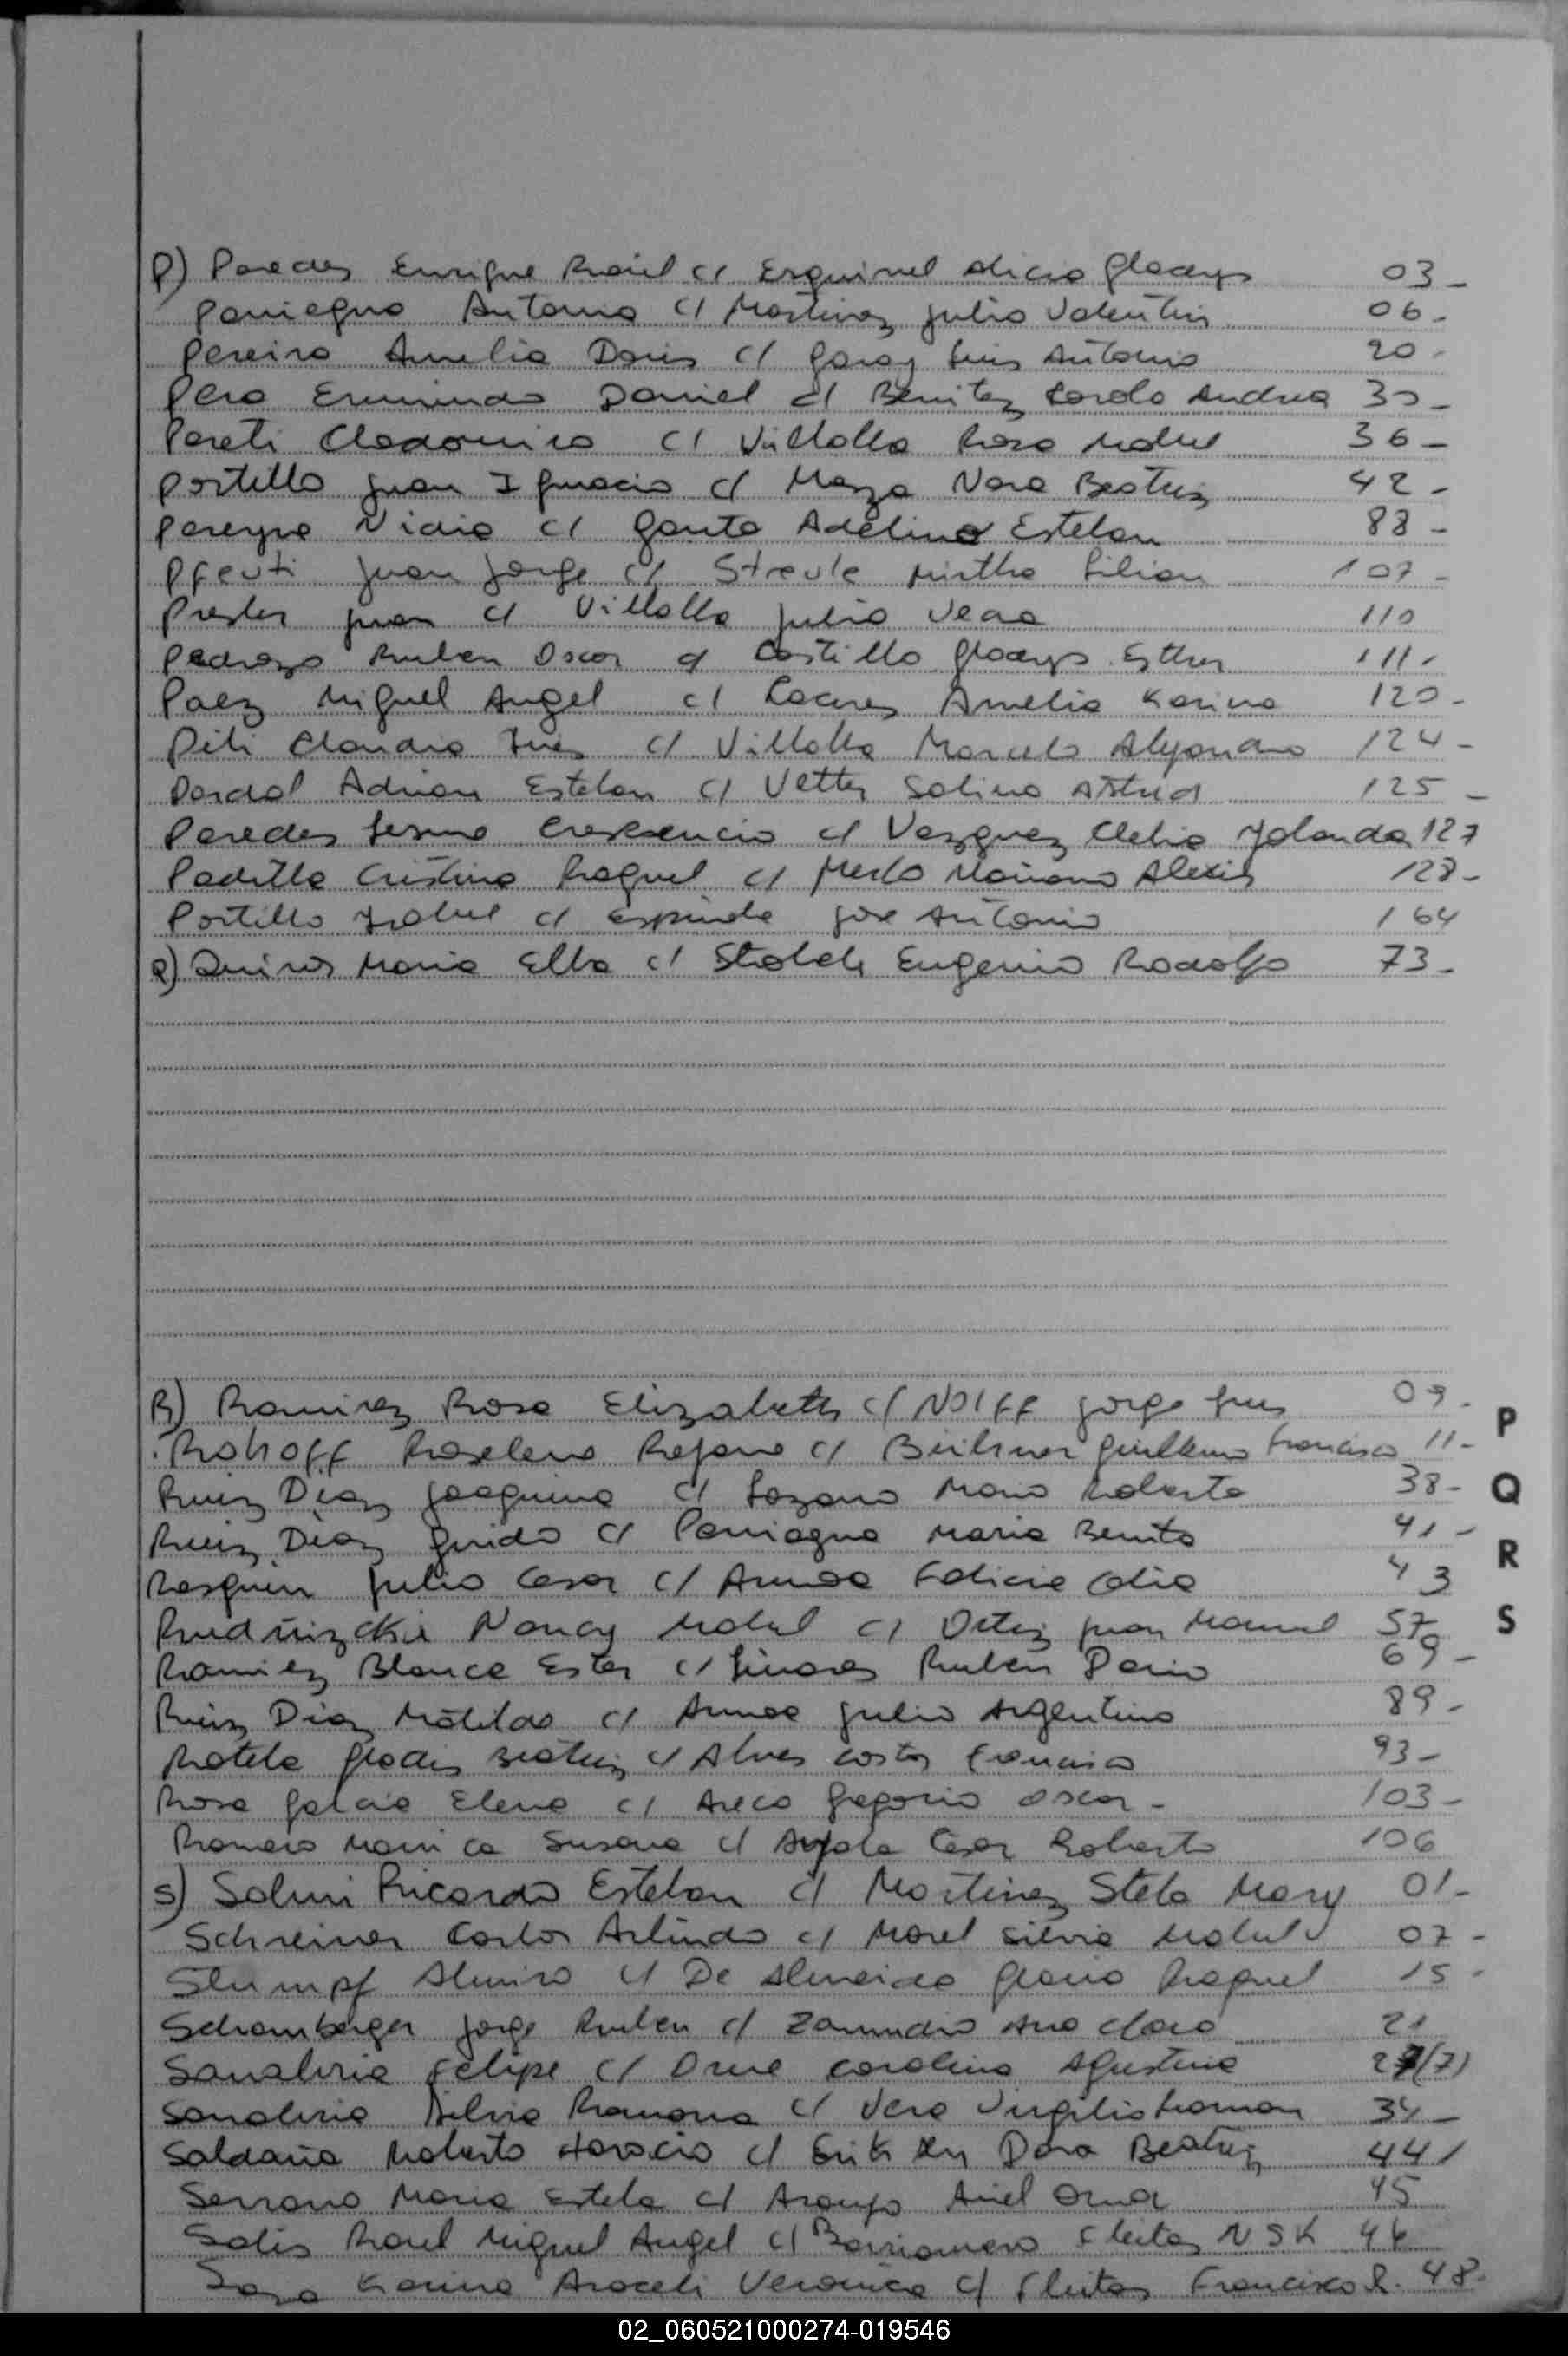 P) Paredes Enrique Raúl c/ Esquivel Alicia Gladys 03-
Paniagua Antonia c/ Martinez Julio Valentin 06-
Pereira Amelia Doris c/ Garay Luis Antonio 20-
Pera Erminda Daniel c/ Benitez Carola Andrea 30-
Pereti Clodomira c/ Villalba Rosa Mabel 36-
Portillo Juan Ignacio c/ Maza Nora Beatriz 42-
Pereyra Nidia c/ Gauto Adelino Esteban 88-
Pfeuti Juan Jorge c/ Streule Mirtha Lilian 107-
Prester Juan c/ Villalba Julia Vera 110
Pedrozo Ruben Oscar c/ Castillo Gladys Esther 111-
Paez Miguel Angel c/ Caceres Amelia Karina 120-
Piti Claudia Ines c/ Villalba Marcelo Alejandro 124-
Dardal Adrian Esteban c/ Vetter Salina Astrid 125-
Paredes Crescencio c/ Vazquez Clelia Yolanda 127
Padilla Cristina Raquel c/ Merlo Mariano Alexis 128-
Portillo Isabel c/ Espinda Jose Antonio 164
Q) Quiros Maria Elba c/ Stolch Eugenio Rodolfo 73-
R) Ramirez Rosa Elizabeth c/ Nolff Jorge Luis 09-
Rohoff Roselene Rejane c/ Büihner Guillermo Francisco 11-
Ruiz Diaz Joaquina c/ Lozano Mario Roberto 38-
Ruiz Diaz Guido c/ Paniagua Maria Benita 41-
Rasquin Julio Cesar c/ Armoa Felicia Celia 43
Rudñizckie Nancy Mabel c/ Ortiz Juan Manuel 57
Ramirez Blanca Ester c/ Linares Ruben Dario 69-
Ruiz Diaz Matilda c/ Armoa Julio Argentino 89-
Rotela Gladis Beatriz c/ Alves Costa Francisco 93-
Rosa Galcia Elena c/ Areco Gregorio Oscar- 103-
Romero Monica Susana c/ Ayala Cesar Roberto 106
S) Salmi Ricardo Esteban c/ Martinez Stela Mary 01-
Schreiner Carlos Arlindo c/ Morel Silvia Mabel 07-
Stumpf Almiro c/ De Almeida Gloria Raquel 15-
Schamberger Jorge Ruben c/ Zamudio Ana Clara 21
Sanabria Felipe c/ Orue Carolina Agustina 27(7)
Sanabria Silvia Ramona c/ Vera Virgilio Roman 34-
Saldaña Roberto Horacio c/ Dora Beatriz 44/
Serrano Maria Estela c/ Araujo Ariel Omar 45
Solis Raul Miguel Angel c/ Barrionuevo Fleitas NSK 46
Sosa Karina Araceli Veronica c/ Fleitas Francisco R. 48-
P
Q
R
S
02_060521000274-019546